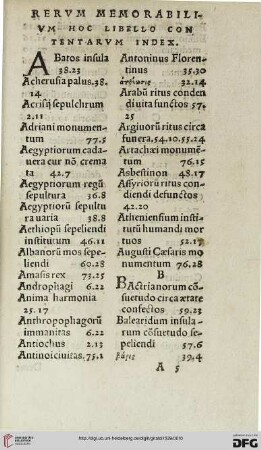 RERVM MEMORABILI-
VM HOC LIBELLO CON
TENTARVM INDEX.
ABatos insula
38.23
Acherusia palus.38.
14
Acrisij sepulchrum
2.11
Adriani monumen-
tum 77.5
Aegyptiorum cada-
uera cur nō crema
ta 42.7
Aegyptiorum regū
sepultura 36.8
Aegyptiorū sepultu
ra uaria 38.8
Aethiopū sepeliendi
institutum 46.11
Albanorū mos sepe-
liendi 60.28
Amasis rex 73.25
Androphagi 6.22
Anima harmonia
25.17
Anthropophagorū
immanitas 6.22
Antiochus 2.13
Antinoiciuitas.75.1
Antoninus Floren-
tinus 35.30
32.14
Arabū ritus conden
di uita functos 57.
25
Argiuorū ritus circa
funera.54.10.55.24
Artachæi monumē-
tum 76.15
Asbestinon 48.17
Assyriorū ritus con-
diendi defunctos
42.20
Atheniensium insti-
tutū humandi mor
tuos 52.17
Augusti Cæsaris mo
numentum 76.28
B
BActrianorum cō-
suetudo circa ætate
confectos 59.23
Balearidum insula-
rum cōsuetudo se-
peliendi 57.6
βάρις 39.4
A 5
http://digi.ub.uni-heidelberg.de/diglit/giraldi1539/0010
UNIVERSITÄTS-
BIBLIOTHEK
HEIDELBERG
Gefördert durch die
DFG